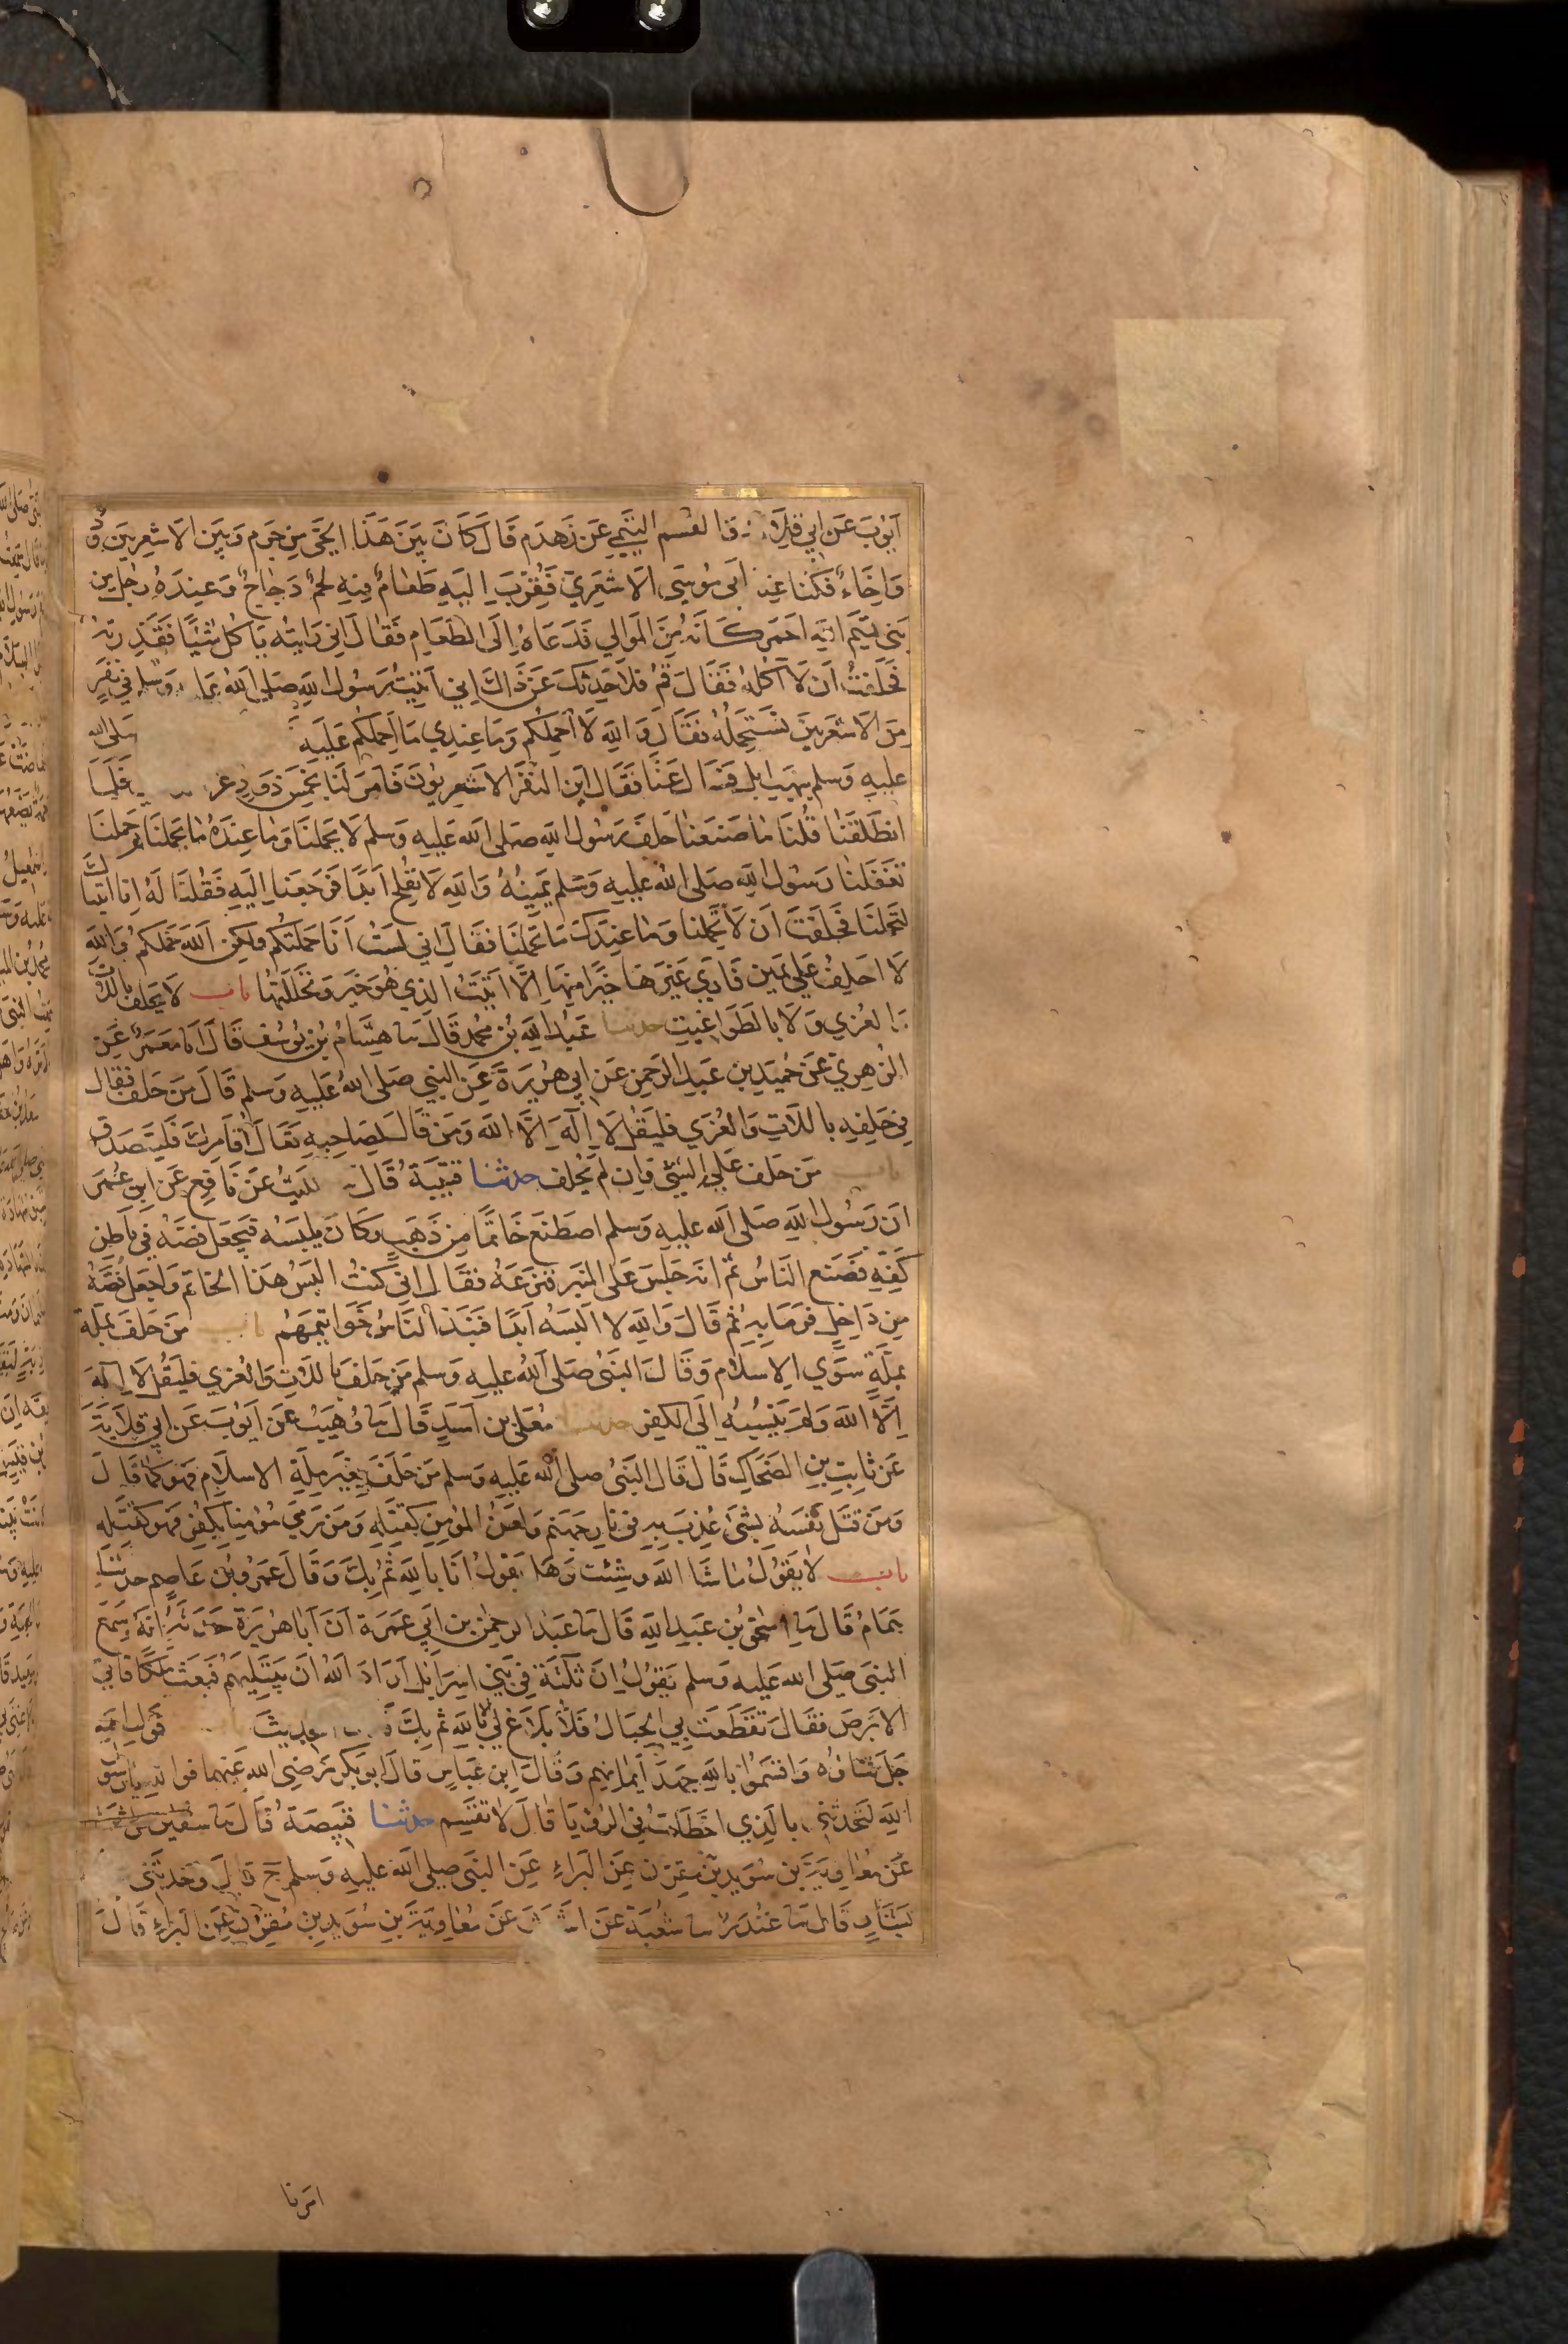 أيوب عن أبي قلابة والقسم التيمي عن زهدم قال كان بين هذا الحي من جرم وبين الأشعريين ود
واخاء فكنا عند أبي موسى الأشعري فقرب إليه طعام فيه لحم دجاج وعنده رجل من
بني تيم الله احمر كأنه من الموالي فدعاه إلى الطعام فقال اني رايته ياكل شيئا فقذرته
فحلفت أن لا آكله فقال قم فلاحدثك عن ذاك إني أتيت رسول الله صلى الله وسلم في نفر
من الاشعريين نستحمله فقال والله لا أحملكم وما عندي ما أحملكم عليه صلى الله
عليه وسلم بنهب ابل فسال عنا فقال اين النفر الاشعريون فامر لنا بخمس ذود فلما
انطلقنا قلنا ما صنعنا حلف رسول الله صلى الله عليه وسلم لا يحملنا وما عنده ما يحملنا ثم حملنا
تغفلنا رسول الله صلى الله عليه وسلم يمينه والله لا نفلح ابدا فرجعنا إليه فقلنا له انا اتيناك
لتحملنا فحلفت ان لا تحملنا وما عندك ما تحملنا فقال اني لست أنا حملتكم ولكن الله حملكم والله
لا احلف على يمين فاري غيرها خيرا منها إلا أتيت الذي هو خير وتحللتها باب لا يحلف باللات
والعزي ولا بالطواغيت حدثنا عبد الله بن محمد قال ثنا هشام بن يوسف قال انا معمر عن
الزهري عن حميد بن عبد الرحمن عن ابي هريرة عن النبي صلى الله عليه وسلم قال من حلف فقال
في حلفه باللات والعزي فليقل لا إله إلا الله ومن قال لصاحبه تعال اقامرك فليتصدق
باب من حلف على الشئ وان لم يحلف حدثنا قتيبة قال ثنا الليث عن نافع عن ابن عمر
ان رسول الله صلى الله عليه وسلم اصطنع خاتما من ذهب وكان يلبسه فيجعل فصه في باطن
كفه فصنع الناس ثم انه جلس على المنبر فنزعه فقال اني كنت البس هذا الخاتم واجعل فصه
من داخل فرمابه ثم قال والله لا البسه ابدا فنبذ الناس خواتيمهم باب من حلف بملة
بملة سوي الاسلام وقال النبي صلى الله عليه وسلم من حلف باللات والعزي فليقل لا إله
إلا الله ولم ينسبه إلى الكفر حدثنا معلى بن اسد قال ثنا وهيب عن أيوب عن ابي قلابة
عن ثابت بن الضحاك قال قال النبي صلى الله عليه وسلم من حلف بغير ملة الاسلام فهو كما قال
ومن قتل نفسه بشئ عذب به في نار جهنم ولعن المؤمن كقتله ومن رمي مؤمنا بكفر فهو كقتله
باب لا يقول ما شا الله وشئت وهل يقول انا بالله ثم بك وقال عمرو بن عاصم حدثنا
همام قال ثنا اسحق بن عبد الله قال ثنا عبد الرحمن بن أبي عمرة ان ابا هريرة حدثه انه سمع
النبي صلى الله عليه وسلم يقول ان ثلثة في بني اسرايل اراد الله ان يبتليهم فبعث ملكا فاتي
الابرص فقال تقطعت بي الحبال فلا بلاغ لي إلا بالله ثم بك قول الله
جل ثناؤه واقسموا بالله جهد ايمانهم وقال ابن عباس قال ابو بكر رضي الله عنهما فوالله يا رسول
الله لتحدثني بالذي اخطات في الرؤيا قال لا تقسم حدثنا قبيصة قال ثنا سفين عن
عن معاوية بن سويد بن مقرن عن البراء عن النبي صلى الله عليه وسلم ح قال وحدثني
بشار قال ثنا غندر ثنا شعبة عن عن معاوية بن سويد بن مقرن عن البراء قال
امرنا